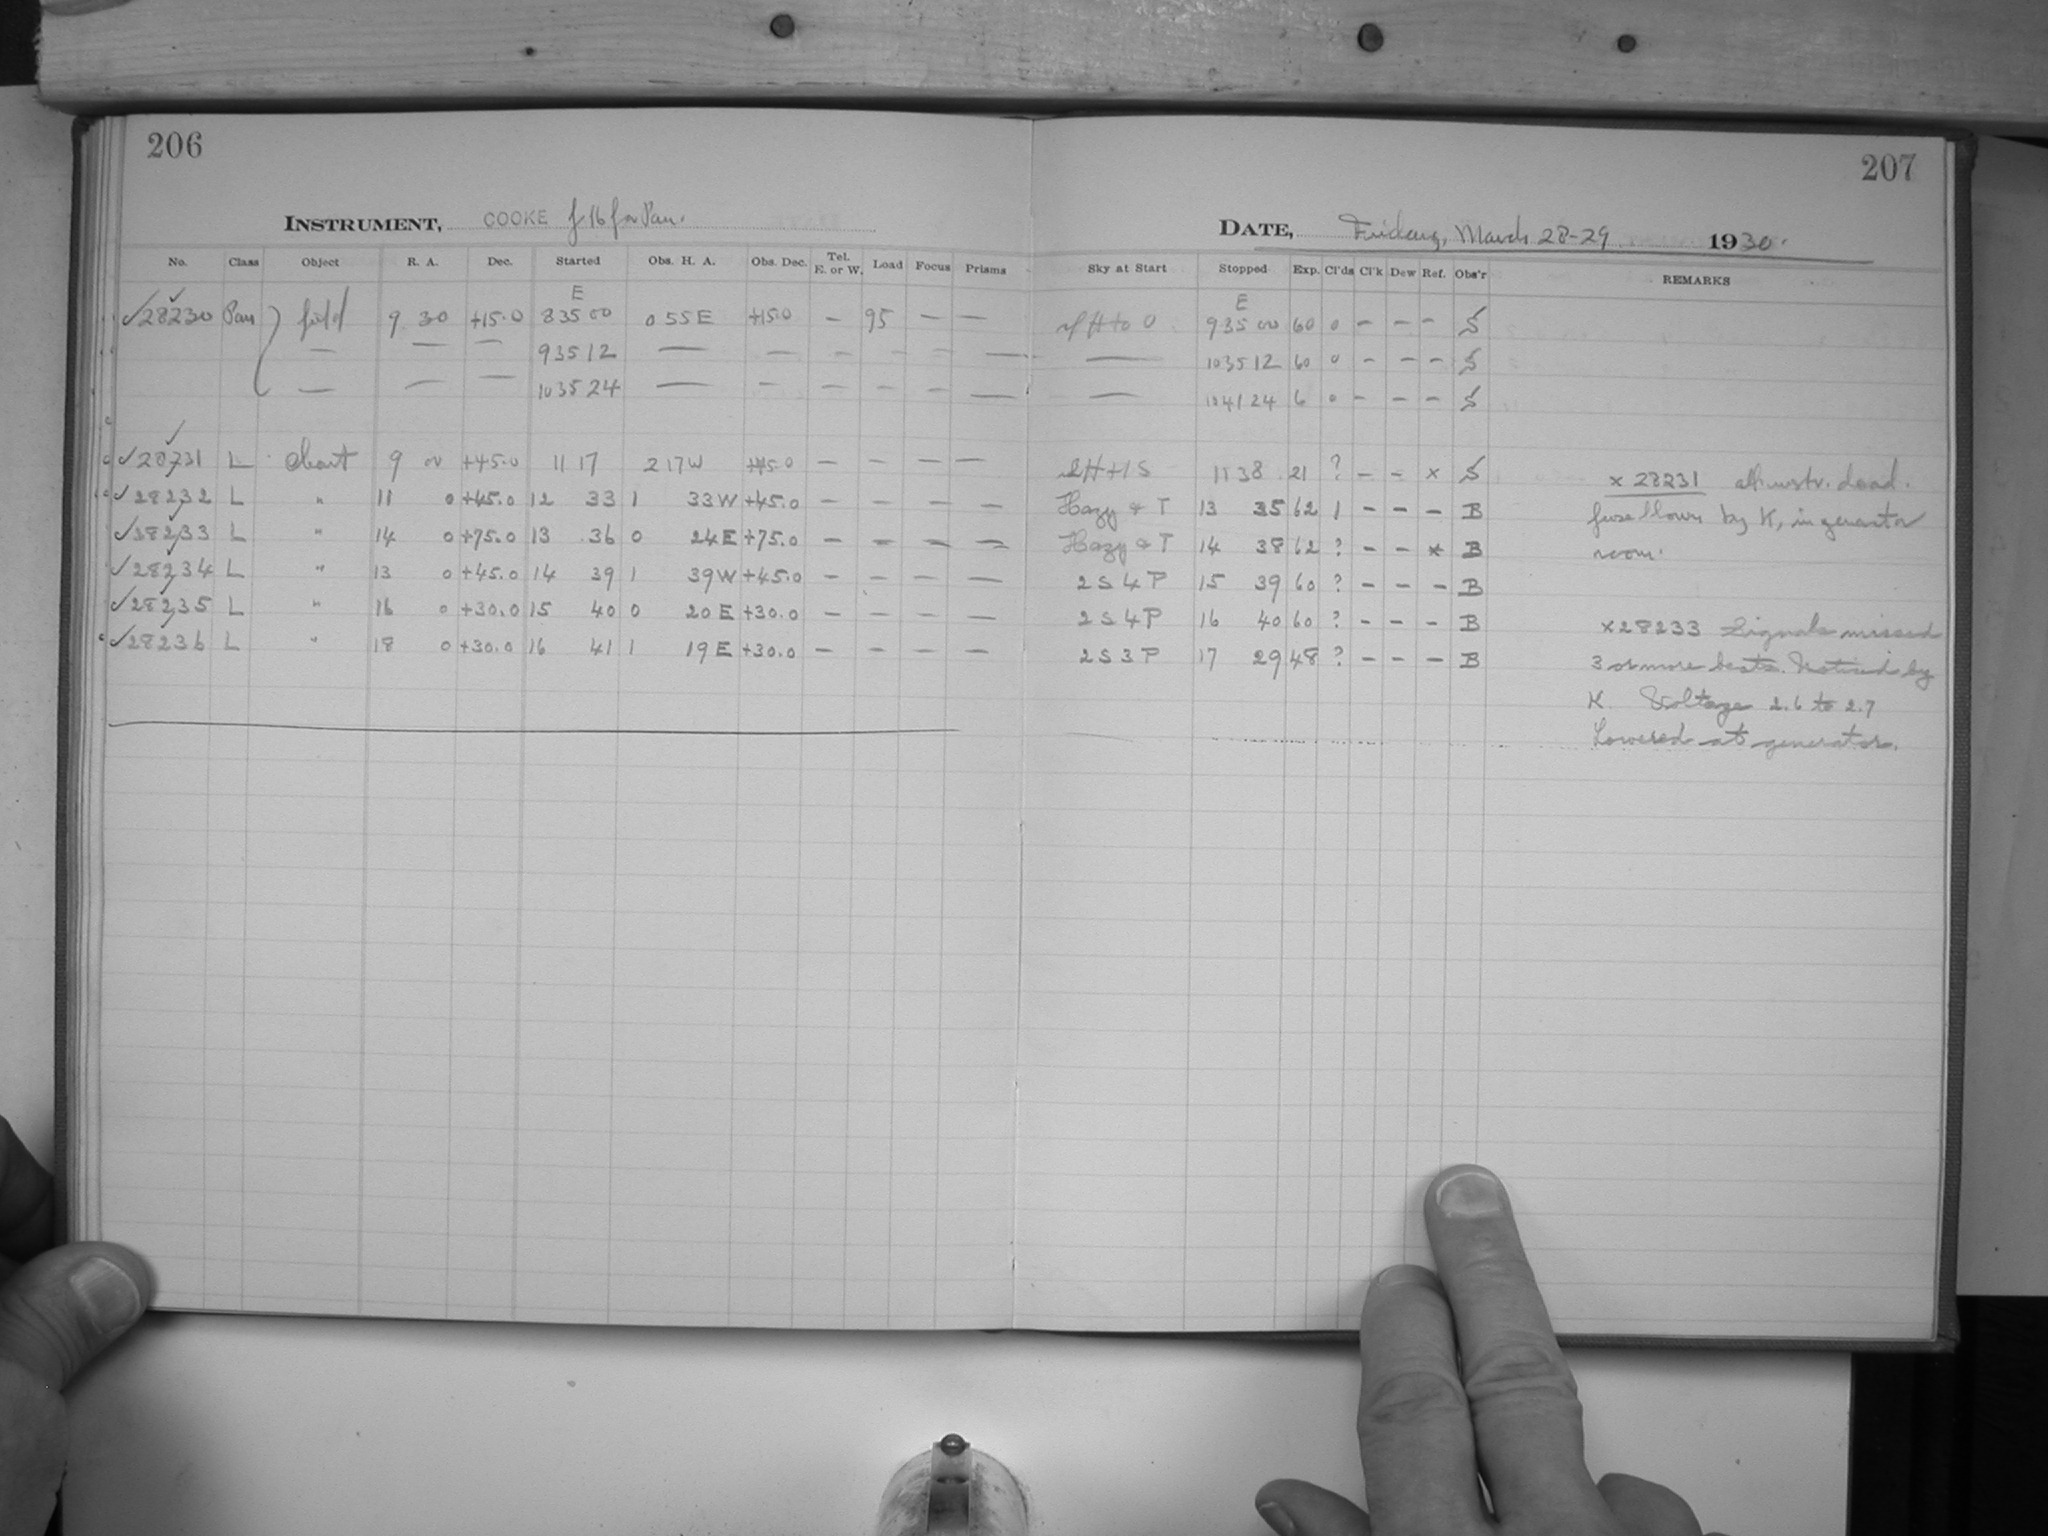 206
207
INSTRUMENT, COOKE f.16 for Pan.
DATE, Friday, March 28-29 1930.
No. Class Object R. A. Dec. Started Obs. H. A. Obs. Dec. Tel. E. or W. Load Focus Prisms Sky at Start Stopped Exp. Cl'ds Cl'k Dew Ref. Obs'r REMARKS
E E
✓28230 Pan field 9 30 +15.0 8 35 00 0 55 E +15.0 — 95 — — H to 0 9 35 00 60 0 — — — S
— — — 9 35 12 — — — — — — — 10 35 12 60 0 — — — S
— — — 10 35 24 — — — — — — — 10 41 24 6 0 — — — S
✓28231 L Chart 9 00 +45.0 11 17 2 17 W +45.0 — — — — 2H+1S 11 38 21 ? — — x S x 28231 all instr. dead.
✓28232 L " 11 0 +45.0 12 33 1 33 W +45.0 — — — — Hazy & T 13 35 62 1 — — — B fuse blown by K, in generator
✓28233 L " 14 0 +75.0 13 36 0 24 E +75.0 — — — — Hazy & T 14 38 62 ? — — x B room.
✓28234 L " 13 0 +45.0 14 39 1 39 W +45.0 — — — — 2 S 4 P 15 39 60 ? — — — B
✓28235 L " 16 0 +30.0 15 40 0 20 E +30.0 — — — — 2 S 4 P 16 40 60 ? — — — B x 28233 Signals missed
✓28236 L " 18 0 +30.0 16 41 1 19 E +30.0 — — — — 2 S 3 P 17 29 48 ? — — — B 3 or more beats. Noticed by
K. Voltage 2.6 to 2.7
Lowered at generator.